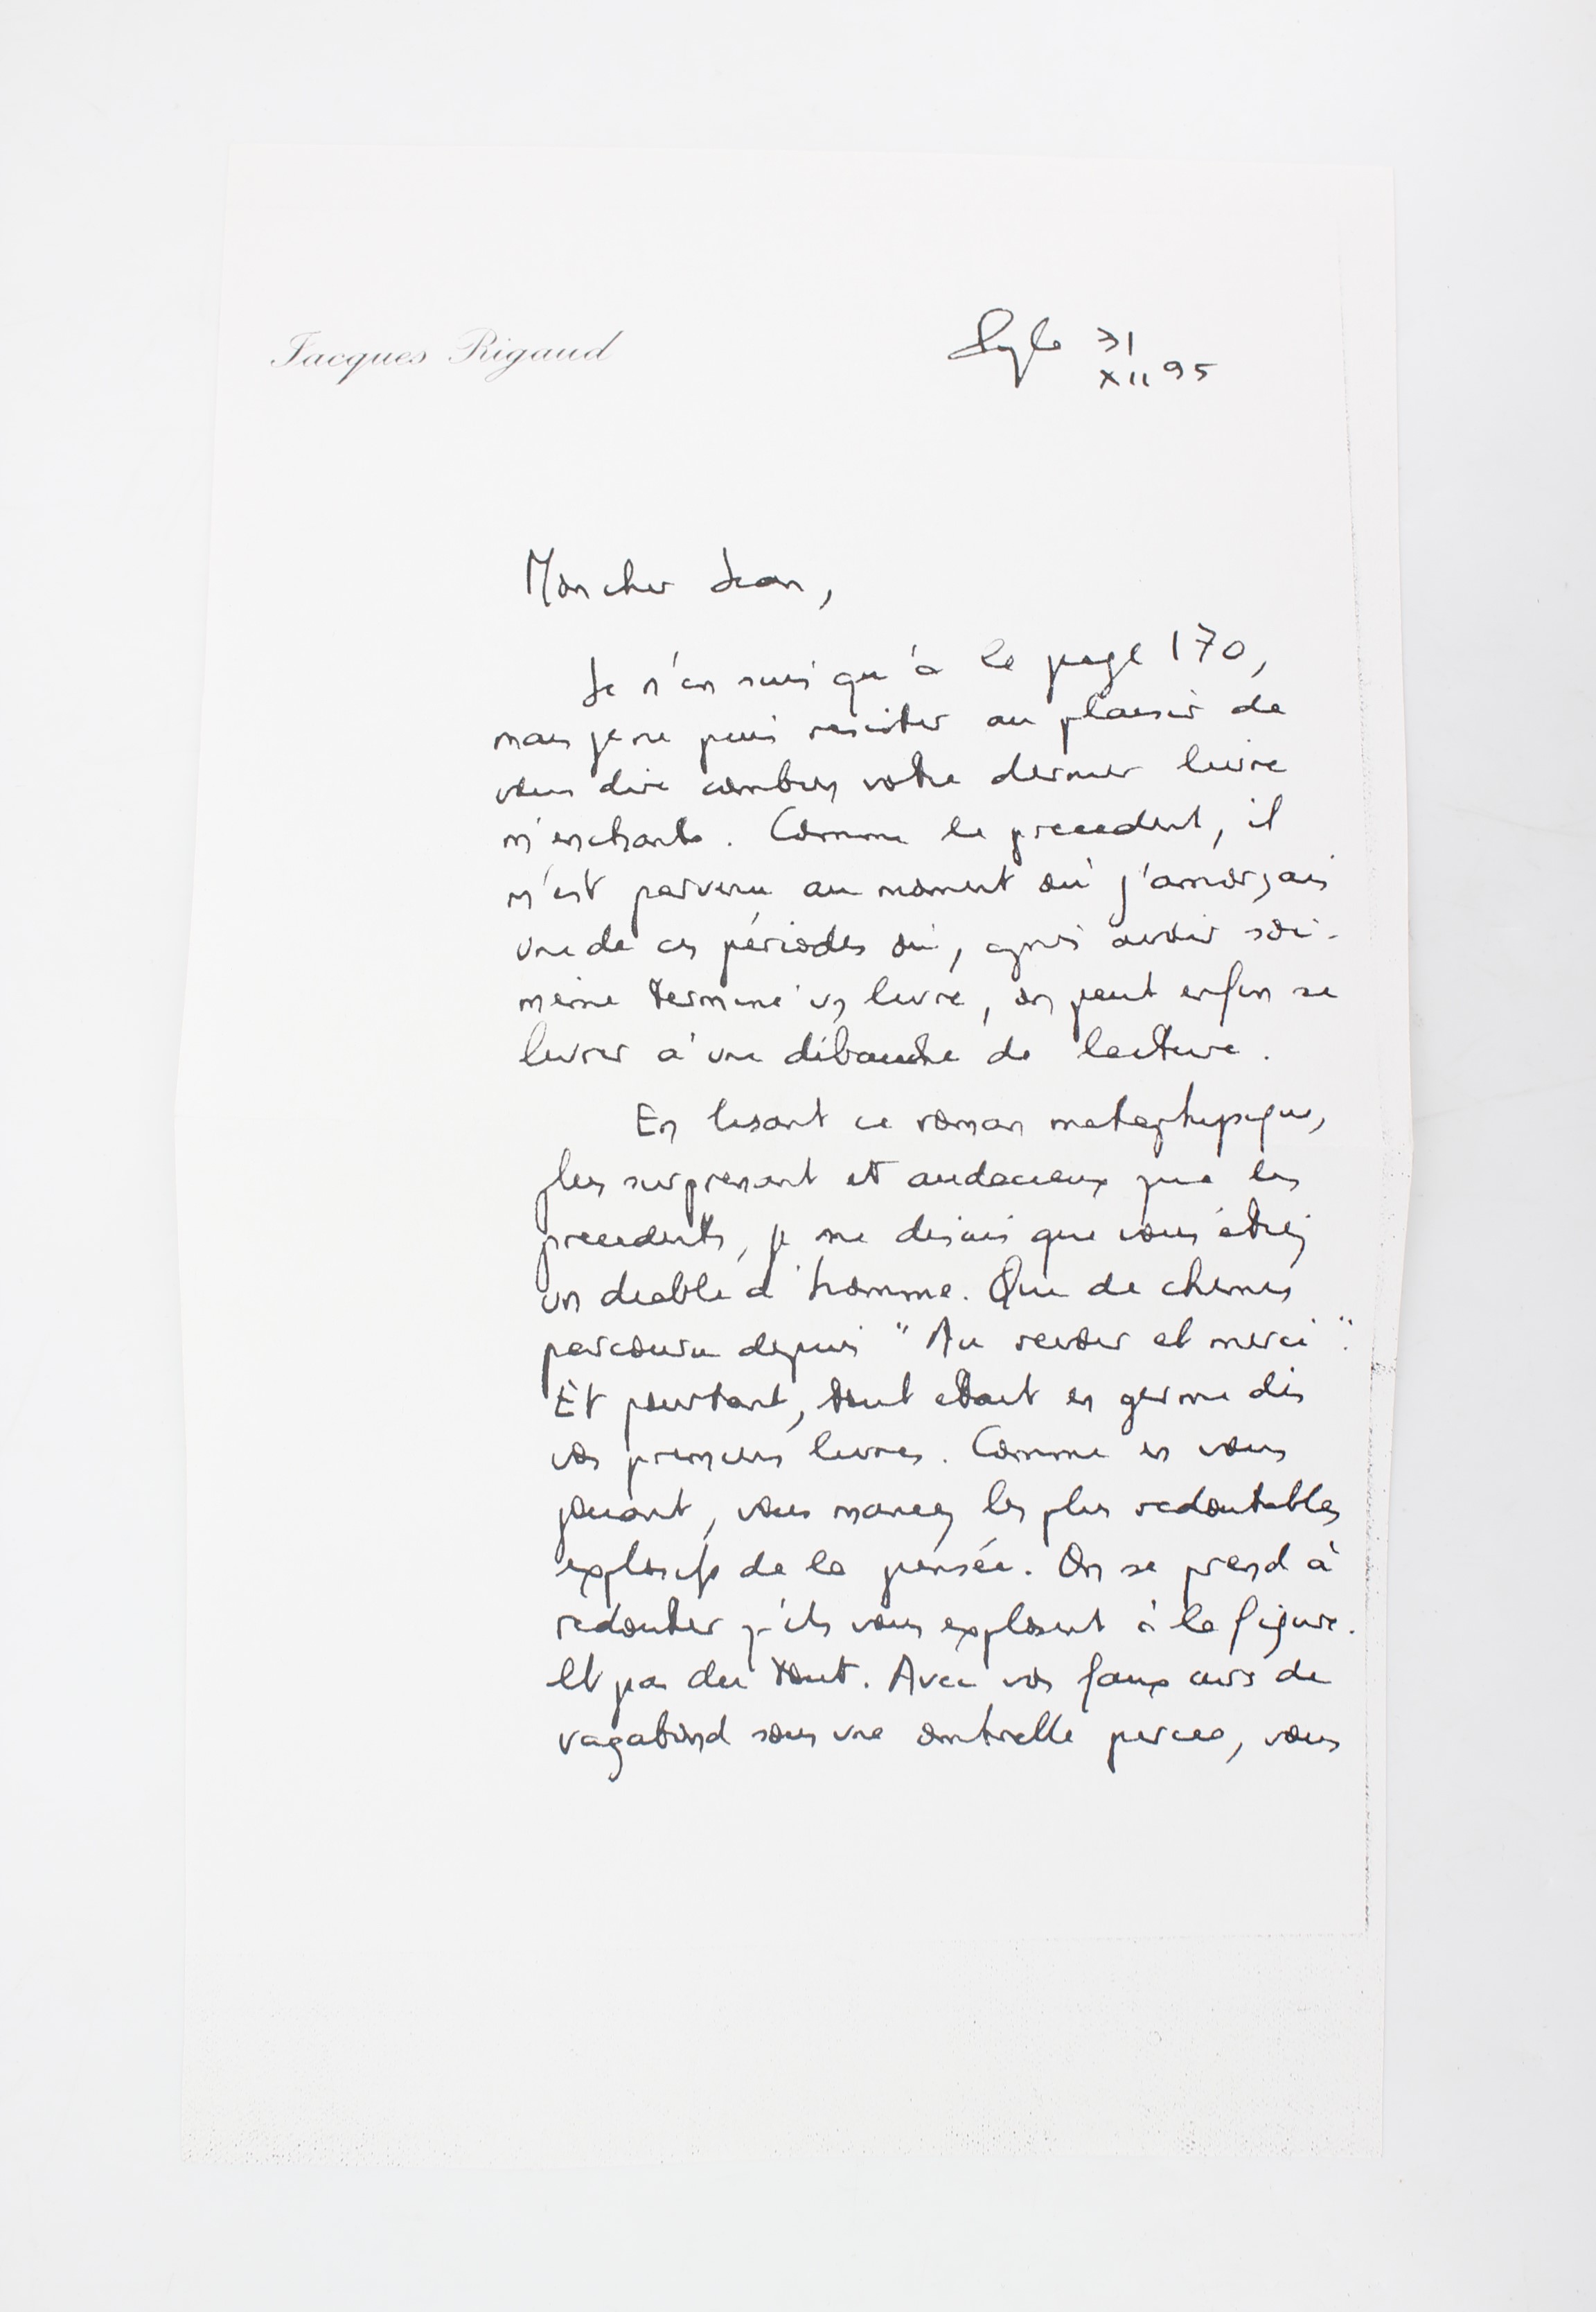 Jacques Rigaud
31
XII 95
Mon cher Jean,
Je n'en suis qu'à la page 170,
mais je ne puis résister au plaisir de
vous dire combien votre dernier livre
m'enchante. Comme le precedent, il
m'est parvenu au moment où j'amorçais
une de ces périodes où, après avoir soi-
même terminé un livre, on peut enfin se
livrer à une débauche de lecture.
En lisant ce roman metaphysique,
plus surprenant et audacieux que les
precedents, je me disais que vous étiez
un diable d'homme. Que de chemins
parcouru depuis "Au revoir et merci".
Et pourtant, tout etait en germe dès
vos premiers livres. Comme en vous
jouant, vous maniez les plus redoutables
explosifs de la pensée. On se prend à
redouter qu'ils vous explosent à la figure.
Et pas du tout. Avec vos faux airs de
vagabond sous une ombrelle percee, vous